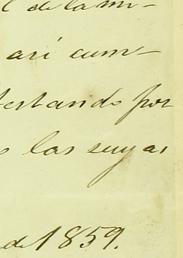 de la mi-
así cum-
testando por
las suyas
de 1859.